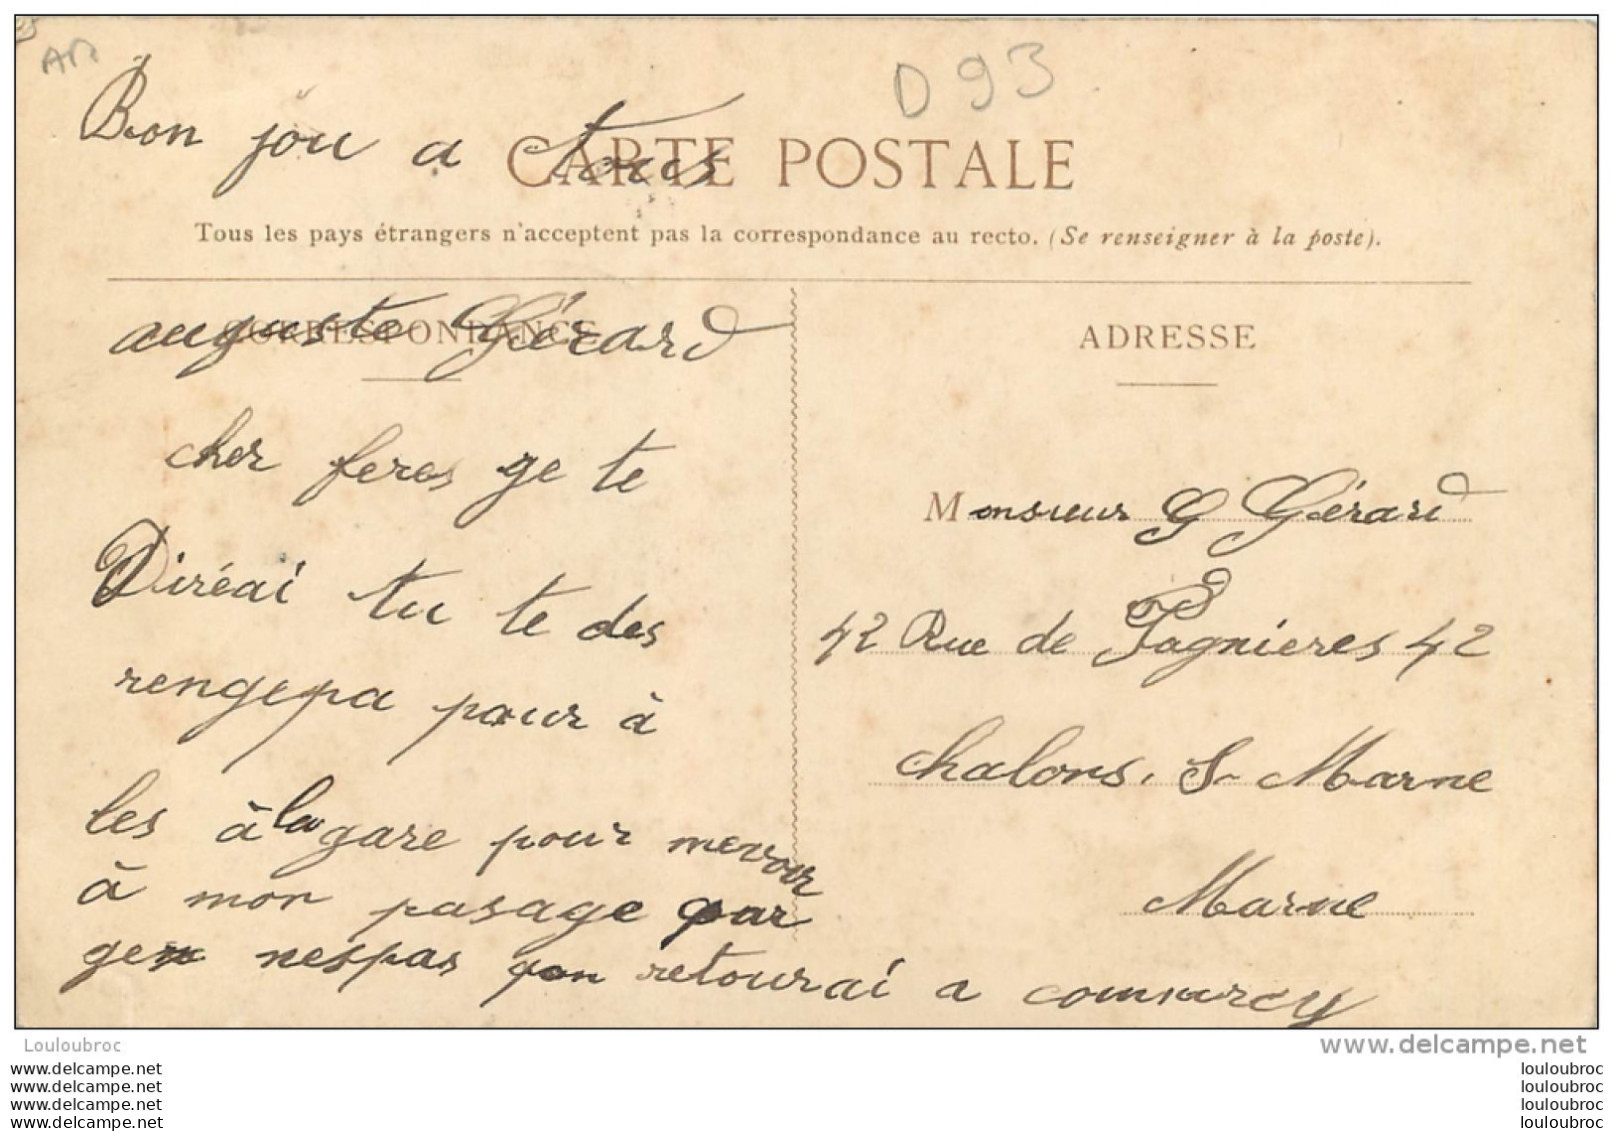 D 93
Bon jou a tous
CARTE POSTALE
Tous les pays étrangers n'acceptent pas la correspondance au recto. (Se renseigner à la poste).
CORRESPONDANCE
auguste Gérard
cher feres ge te
Diréai tu te des
rengepa pour à
les à la gare pour mevoir
à mon pasage par
gen nespas pon retourai a commercy
ADRESSE
Monsieur G Gérard
42 Rue de Fagnieres 42
Chalons. S- Marne
Marne
Louloubroc
www.delcampe.net
www.delcampe.net
www.delcampe.net
www.delcampe.net
www.delcampe.net
louloubroc
louloubroc
louloubroc
louloubroc